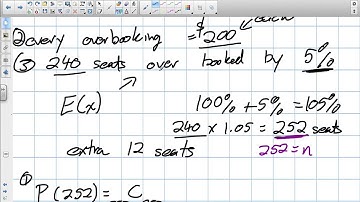 each
② every overbooking = $200
③ 240 seats over booked by 5%
E(x)
100% + 5% = 105%
240 x 1.05 = 252 seats
extra 12 seats
252 = n
①
P(252) = C